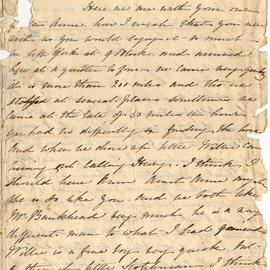 Here we are with your own
how I wish that you were
with us you would enjoy it so much
we left York at 9 o'clock and arrived
here at a quarter to four we came very quickly
it is more than 200 miles and then we
stopped at several places sometimes we
came at the rate of 55 miles an hour
we had no difficulty in finding the house
and when we drove up little Willie came
running out calling Henry. I think I
should have known Aunt Anne
she is so like you. And we both like
Mr Bankhead very much he is a very
different man to what I had
Willie is a fine boy very quick but
little Scotchman I think